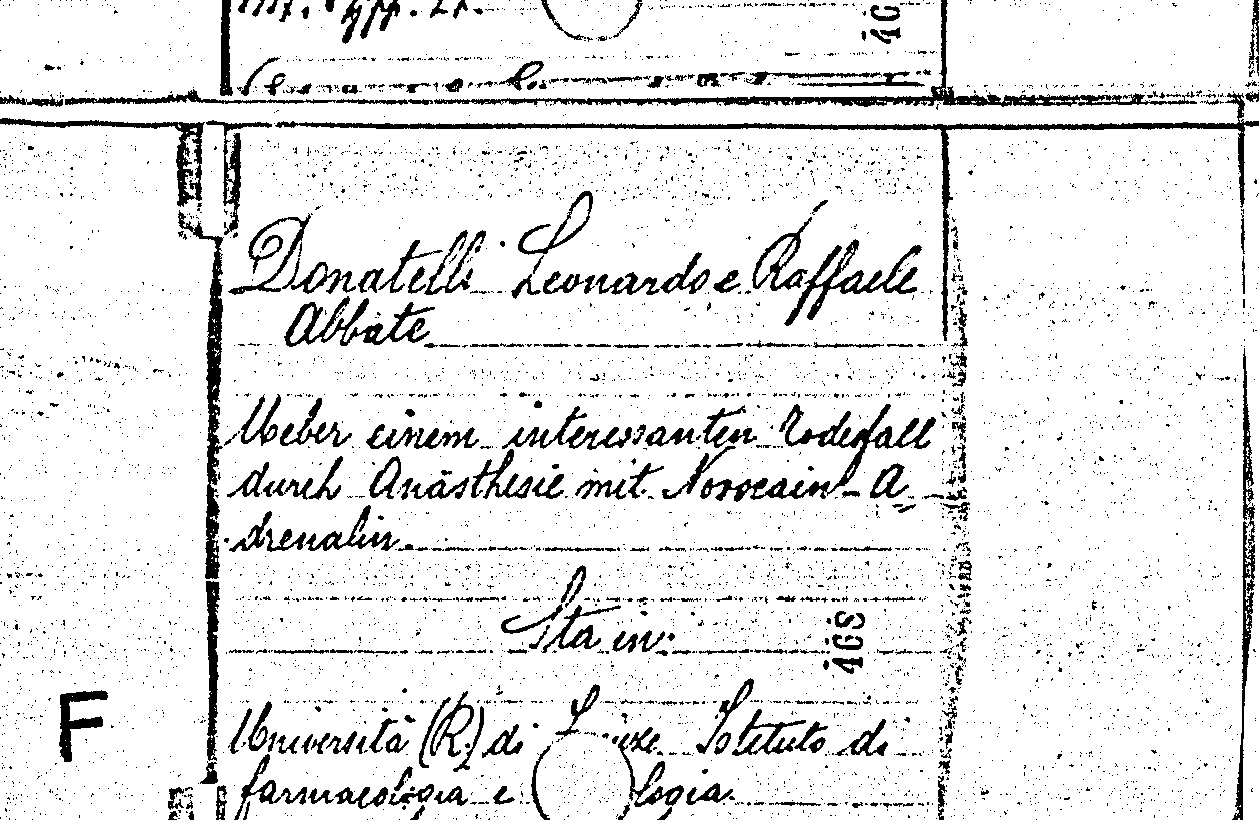 Donatelli Leonardo e Raffaele
Abbate
Ueber einem interessanten Todesfall
durch Anästhesie mit Novocain-A
drenalin.
Sta in:
4GS
F
Università (R.) di Istituto di
farmacologia e logia.